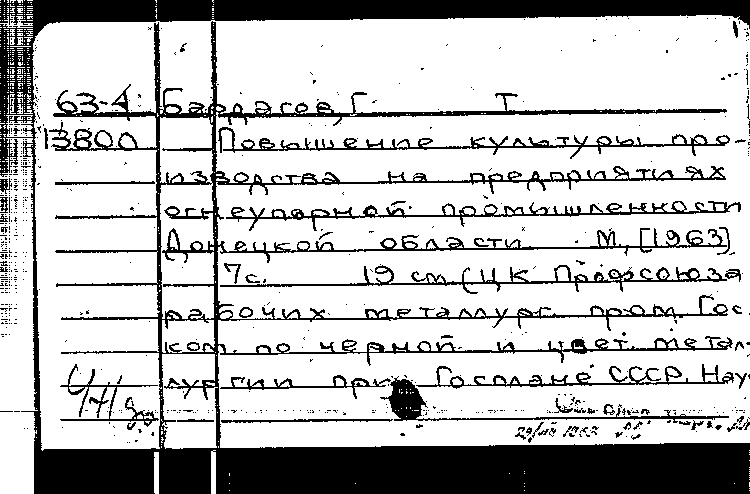 63-4 Бардасов, Г. Т
13800 Повышение культуры про-
изводства на предприятиях
огнеупорной промышленности
Донецкой области. М, [1963]
7 с. 19 см (ЦК Профсоюза
рабочих металлург. пром. Гос.
ком. по черной и цвет. метал-
лургии при Госплане СССР. Науч